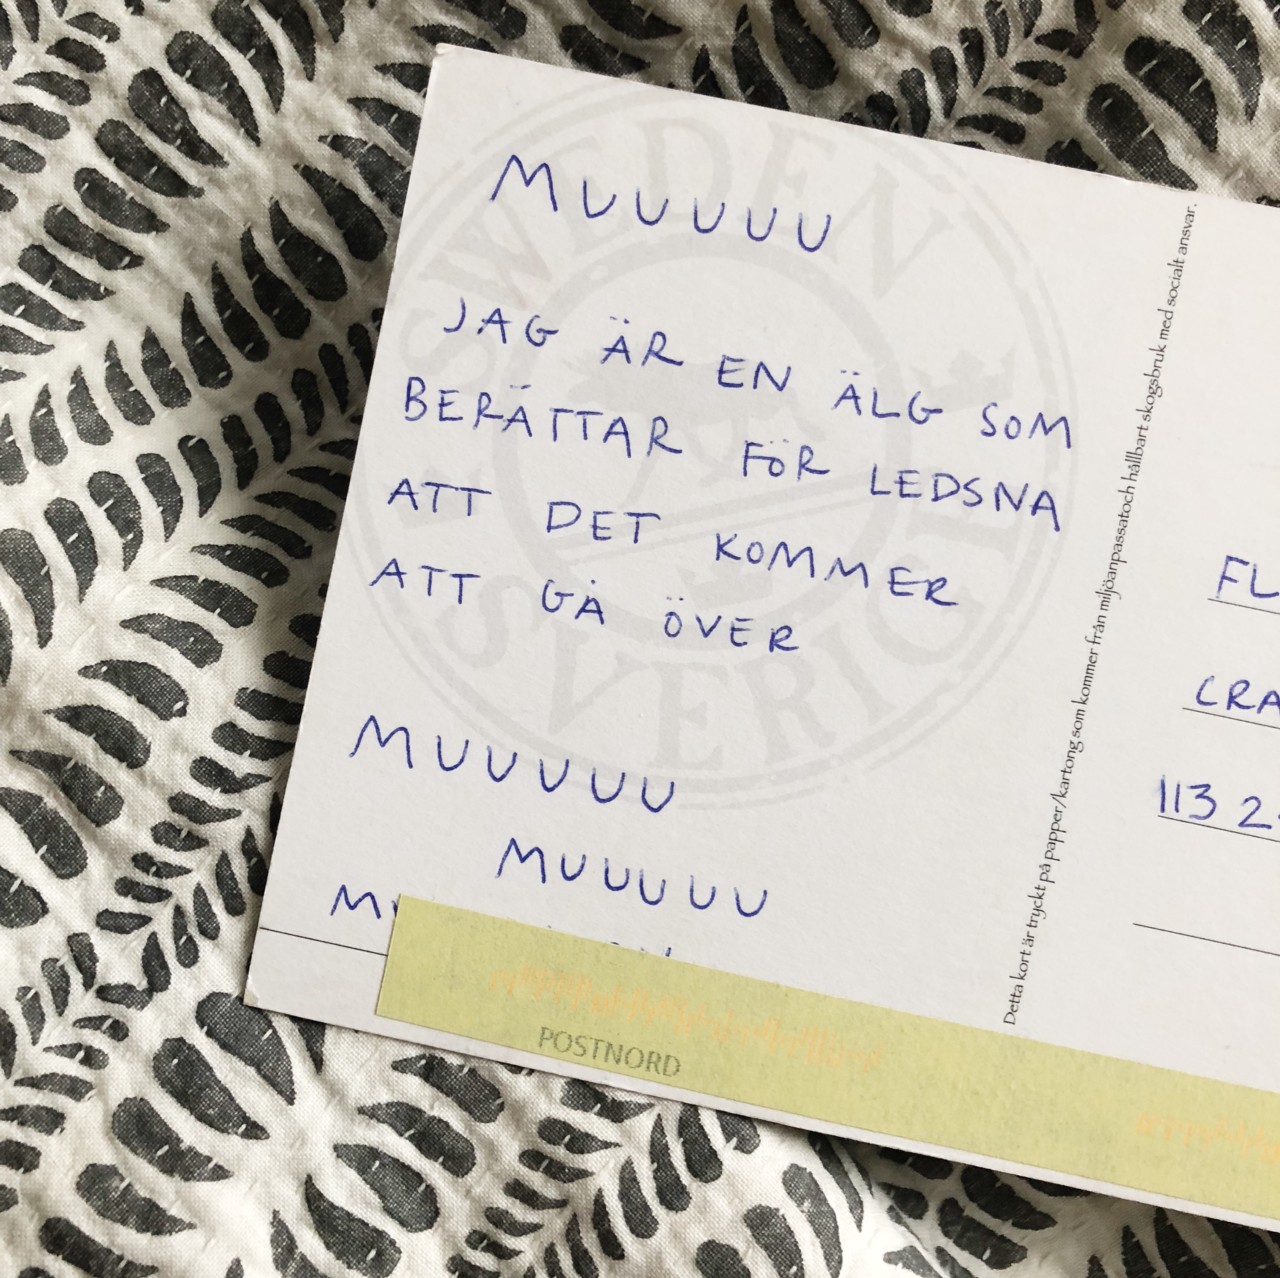 MUUUUU
JAG ÄR EN ÄLG SOM
BERÄTTAR FÖR LEDSNA
ATT DET KOMMER
ATT GÅ ÖVER
MUUUUU
MUUUUU
SWEDEN
SVERIGE
POSTNORD
Detta kort är tryckt på papper/kartong som kommer från miljöanpassatoch hållbart skogsbruk med socialt ansvar.
FL
CRA
113 2